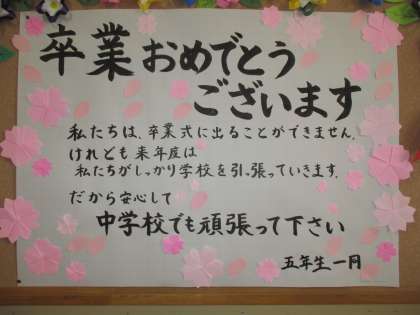 卒業おめでとう
ございます
私たちは、卒業式に出ることができません。
けれども来年度は
私たちがしっかり学校を引っ張っていきます。
だから安心して
中学校でも頑張って下さい
五年生一同